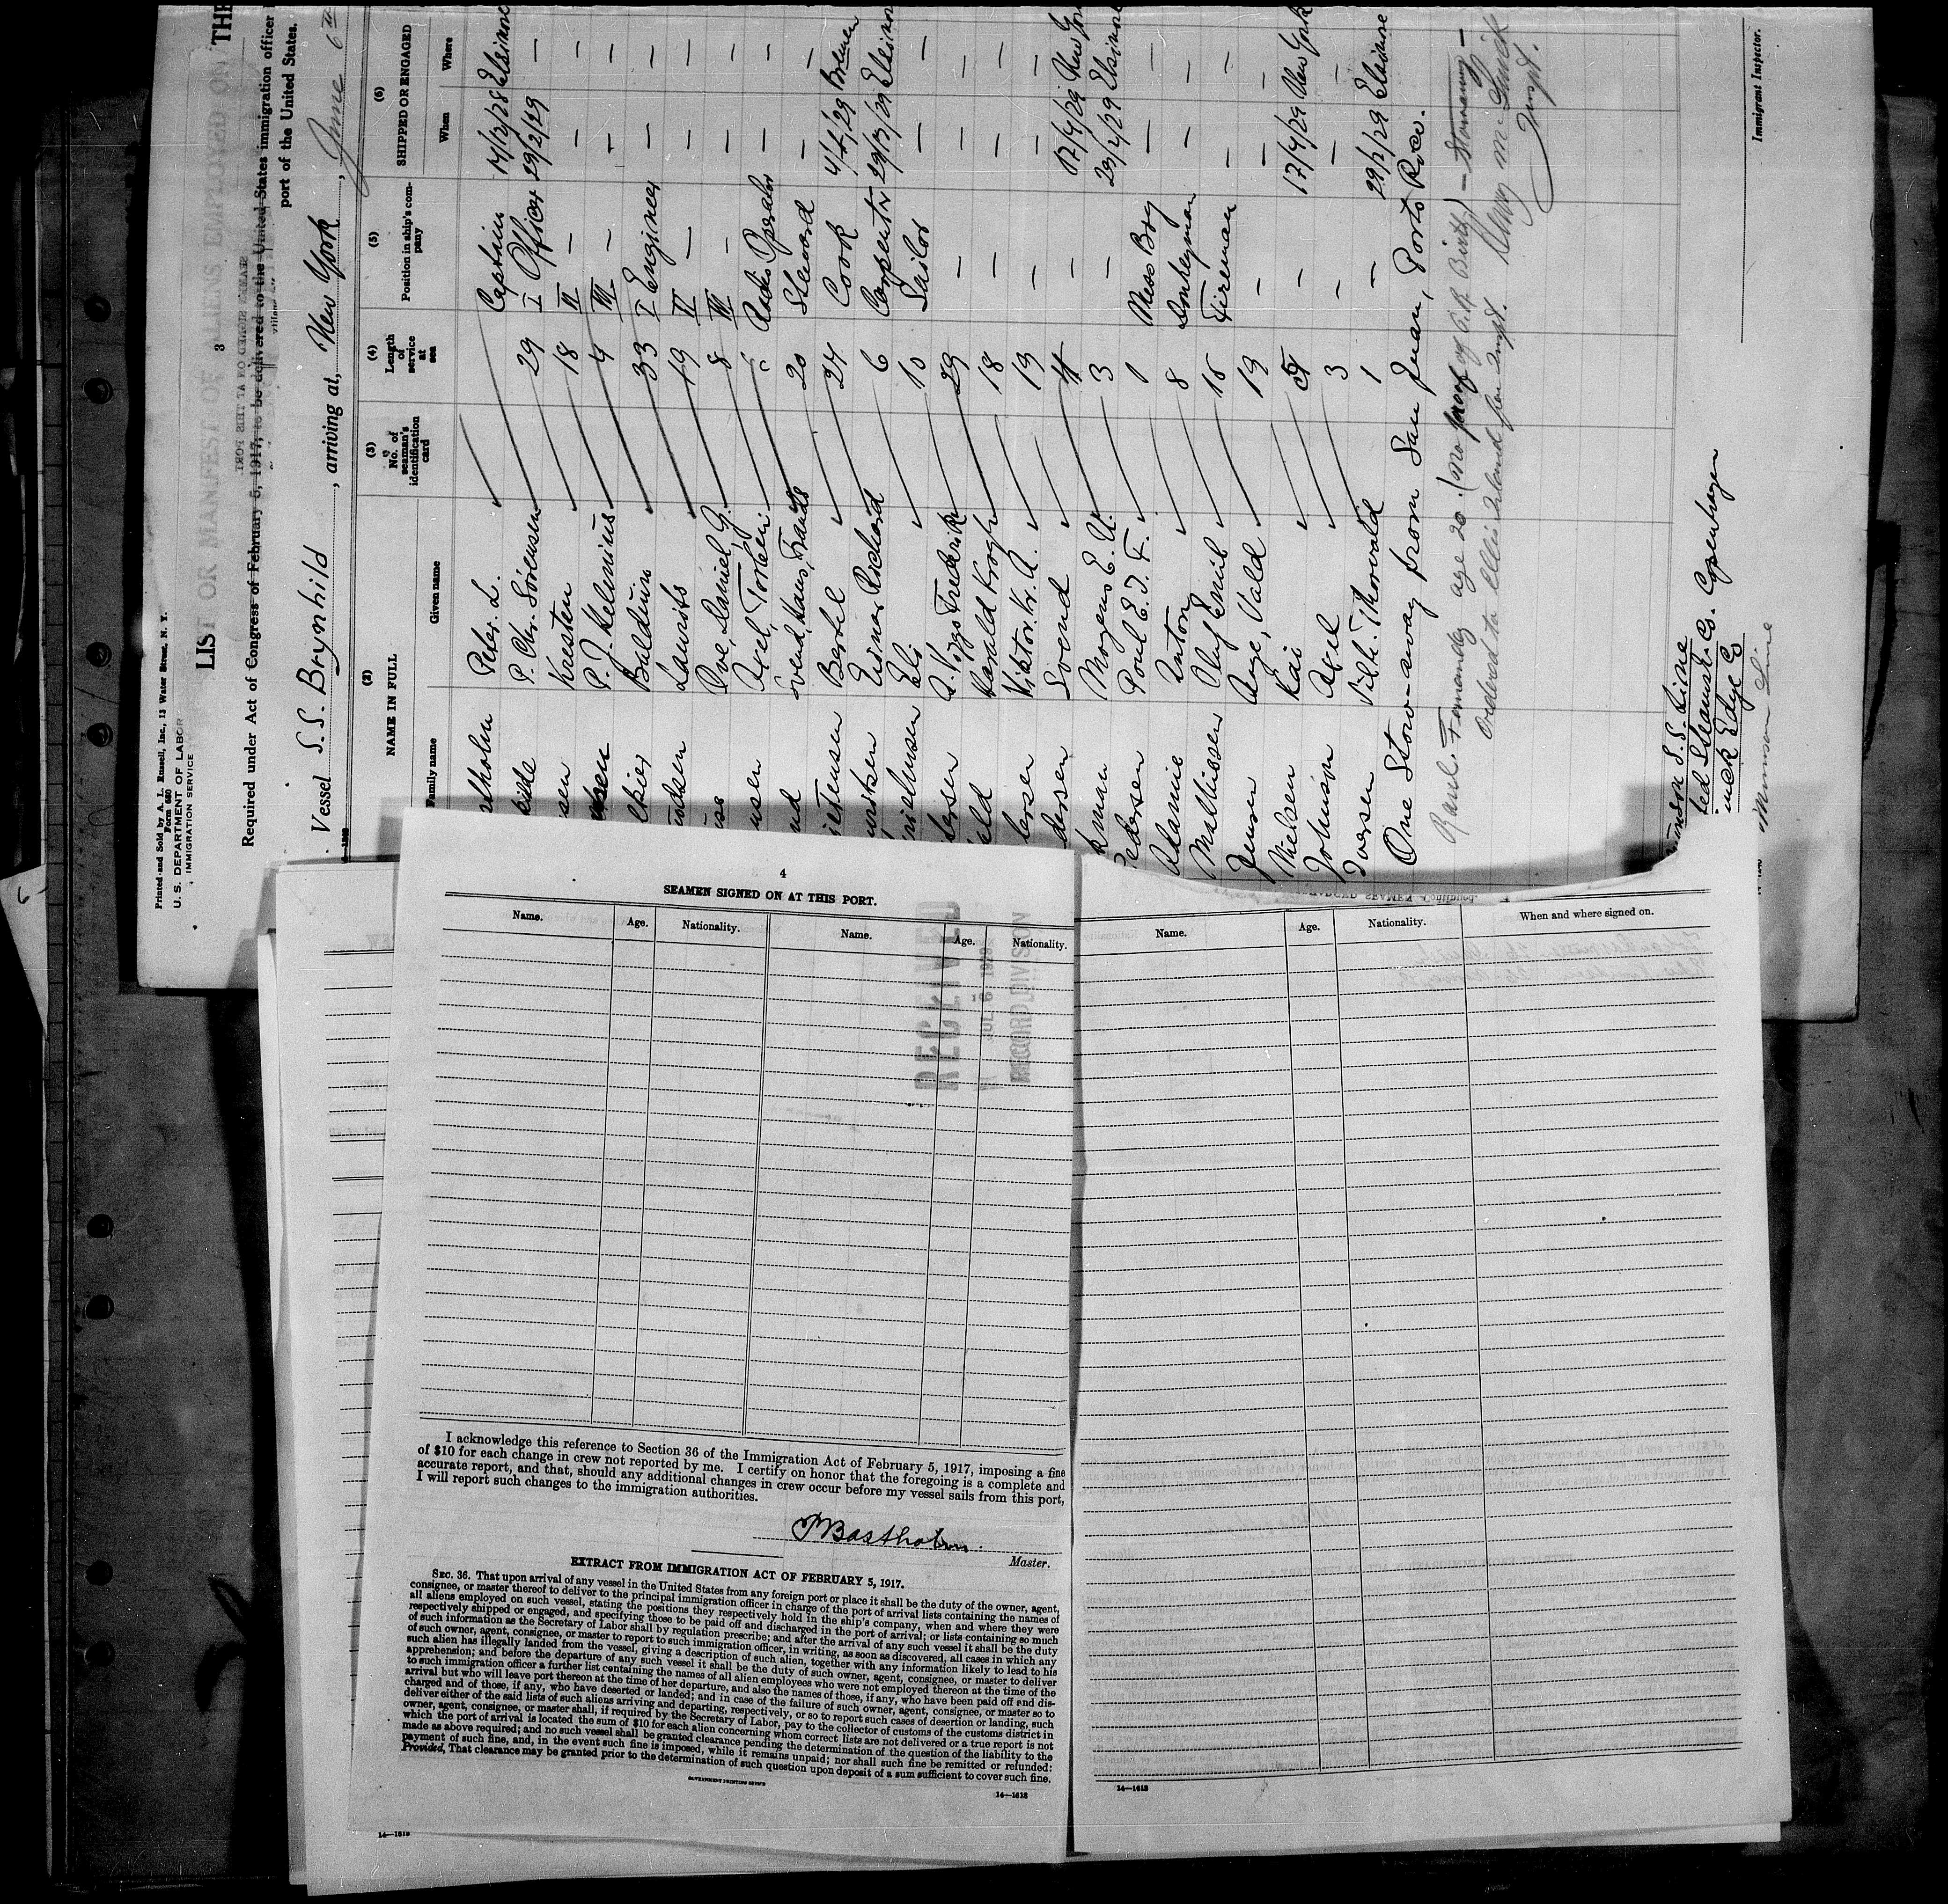 Printed and Sold by A. L. Russell, Inc., 13 Water Street, N. Y.
Form 680
U. S. DEPARTMENT OF LABOR
IMMIGRATION SERVICE
3
LIST OR MANIFEST OF ALIENS EMPLOYED ON THE
Required under Act of Congress of February 5, 1917, to be delivered to the United States immigration officer
port of the United States.
Vessel S.S. Brynhild, arriving at, New York, June 6th
(2) (3) (4) (5) (6)
NAME IN FULL No. of seaman's identification card Length of service at sea Position in ship's company SHIPPED OR ENGAGED
Family name Given name When Where
Peter L. Captain 14/12/28 Elsinore
P. Chr. Sörensen 29 I Officer 29/2/29 —
Kresten 18 II — — —
P. J. Helenius 4 III — — —
33 I Engineer — —
Laurits 19 II — — —
Ove, Daniel, G. 8 III — — —
Axel, Torben Radio Operator — —
Svend, Hans, Frants 20 Steward — —
Bertel 24 Cook 4/4/29 Bremen
Einar Richard 6 Carpenter 29/3/29 Elsinore
Eli 10 Sailor — —
A. Viggo Frederik 29 — — —
Harald Krogh 18 — — —
Viktor. Kr. A. 19 — — —
Svend — 17/4/29 New York
Mogens E. A. 3 — 23/2/29 Elsinore
Pedersen Poul E. T. F. 1 Mess Boy — —
Anton 8 Donkeyman — —
Mathissen Oluf Emil 16 Fireman — —
Jensen Aage, Vald 19 — — —
Nielsen Kai — 17/4/29 New York
Johnsson Axel 3 — — —
Iversen Vilh. Thorvald 1 — 29/2/29 Elsinore
One Stow-away from San Juan, Porto Rico.
Raul Fernandez age 20. (No proof of Birth) — Stowaway —
Ordered to Ellis Island for Inspt.
Inspt.
S. S. Line
Steamsh. Co. Copenhagen
Munson Line
Immigrant Inspector.
4
SEAMEN SIGNED ON AT THIS PORT.
Name. Age. Nationality. Name. Age. Nationality.
Name. Age. Nationality. When and where signed on.
RECEIVED
JUL 16 1929
RECORD DIVISION
I acknowledge this reference to Section 36 of the Immigration Act of February 5, 1917, imposing a fine
of $10 for each change in crew not reported by me. I certify on honor that the foregoing is a complete and
accurate report, and that, should any additional changes in crew occur before my vessel sails from this port,
I will report such changes to the immigration authorities.
PBastholm
Master.
EXTRACT FROM IMMIGRATION ACT OF FEBRUARY 5, 1917.
SEC. 36. That upon arrival of any vessel in the United States from any foreign port or place it shall be the duty of the owner, agent,
consignee, or master thereof to deliver to the principal immigration officer in charge of the port of arrival lists containing the names of
all aliens employed on such vessel, stating the positions they respectively hold in the ship's company, when and where they were
respectively shipped or engaged, and specifying those to be paid off and discharged in the port of arrival; or lists containing so much
of such information as the Secretary of Labor shall by regulation prescribe; and after the arrival of any such vessel it shall be the duty
of such owner, agent, consignee, or master to report to such immigration officer, in writing, as soon as discovered, all cases in which any
such alien has illegally landed from the vessel, giving a description of such alien, together with any information likely to lead to his
apprehension; and before the departure of any such vessel it shall be the duty of such owner, agent, consignee, or master to deliver
to such immigration officer a further list containing the names of all alien employees who were not employed thereon at the time of the
arrival but who will leave port thereon at the time of her departure, and also the names of those, if any, who have been paid off and dis-
charged and of those, if any, who have deserted or landed; and in case of the failure of such owner, agent, consignee, or master so to
deliver either of the said lists of such aliens arriving and departing, respectively, or so to report such cases of desertion or landing, such
owner, agent, consignee, or master shall, if required by the Secretary of Labor, pay to the collector of customs of the customs district in
which the port of arrival is located the sum of $10 for each alien concerning whom correct lists are not delivered or a true report is not
made as above required; and no such vessel shall be granted clearance pending the determination of the question of the liability to the
payment of such fine, and, in the event such fine is imposed, while it remains unpaid; nor shall such fine be remitted or refunded:
Provided, That clearance may be granted prior to the determination of such question upon deposit of a sum sufficient to cover such fine.
GOVERNMENT PRINTING OFFICE
14—1618
14—1618
14—1618